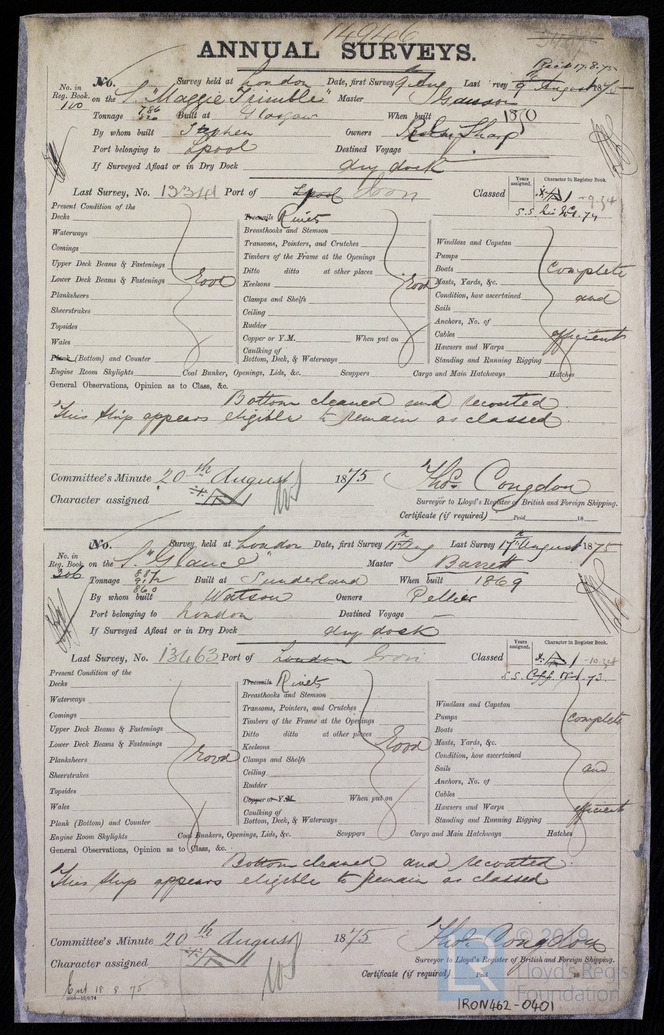 14946
ANNUAL SURVEYS.
Recd 17.8.75
No. in Reg. Book. No. Survey held at London Date, first Survey 9 Aug Last Survey 9th August 1875
110 on the S. "Maggie Trimble" Master
Tonnage 786 Built at Glasgow When built 1870
By whom built Stephen Owners
Port belonging to Lpool Destined Voyage
If Surveyed Afloat or in Dry Dock dry dock
Last Survey, No. Port of Lpool Iron Classed
Years assigned. Character in Register Book.
Present Condition of the
Decks
Waterways
Comings
Upper Deck Beams & Fastenings
Lower Deck Beams & Fastenings Good
Planksheers
Sheerstrakes
Topsides
Wales
Plank (Bottom) and Counter
Treenails Rivets
Breasthooks and Stemson
Transoms, Pointers, and Crutches
Timbers of the Frame at the Openings
Ditto ditto at other places
Keelsons Good
Clamps and Shelfs
Ceiling
Rudder
Copper or Y.M. When put on
Caulking of Bottom, Deck, & Waterways
Windlass and Capstan
Pumps
Boats complete
Masts, Yards, &c.
Condition, how ascertained and
Sails
Anchors, No. of
Cables efficient
Hawsers and Warps
Standing and Running Rigging
Engine Room Skylights Coal Bunker, Openings, Lids, &c. Scuppers Cargo and Main Hatchways Hatches
General Observations, Opinion as to Class, &c.
Bottom cleaned and recoated
This ship appears eligible to remain as classed
Committee's Minute 20th August 1875 Thos. Congdon
Character assigned Surveyor to Lloyd's Register of British and Foreign Shipping.
Certificate (if required) Paid 18
No. in Reg. Book. No. Survey held at London Date, first Survey Aug Last Survey 17th August 1875
306 on the S. "Glance" Master Barrett
Tonnage 860 Built at Sunderland When built 1869
By whom built Watson Owners Pellier
Port belonging to London Destined Voyage
If Surveyed Afloat or in Dry Dock dry dock
Last Survey, No. 13463 Port of London Iron Classed
Years assigned. Character in Register Book.
Present Condition of the
Decks
Waterways
Comings
Upper Deck Beams & Fastenings
Lower Deck Beams & Fastenings
Planksheers Good
Sheerstrakes
Topsides
Wales
Plank (Bottom) and Counter
Treenails Rivets
Breasthooks and Stemson
Transoms, Pointers, and Crutches
Timbers of the Frame at the Openings
Ditto ditto at other places
Keelsons Good
Clamps and Shelfs
Ceiling
Rudder
Copper or Y.M. When put on
Caulking of Bottom, Deck, & Waterways
Windlass and Capstan
Pumps complete
Boats
Masts, Yards, &c.
Condition, how ascertained
Sails and
Anchors, No. of
Cables
Hawsers and Warps efficient
Standing and Running Rigging
Engine Room Skylights Coal Bunkers, Openings, Lids, &c. Scuppers Cargo and Main Hatchways Hatches
General Observations, Opinion as to Class, &c.
Bottom cleaned and recoated
This ship appears eligible to remain as classed
Committee's Minute 20th August 1875 Thos. Congdon
Character assigned Surveyor to Lloyd's Register of British and Foreign Shipping.
Certificate (if required) Paid 18
18 8 75
© 2019
Lloyd's Register
Foundation
IRON462-0401